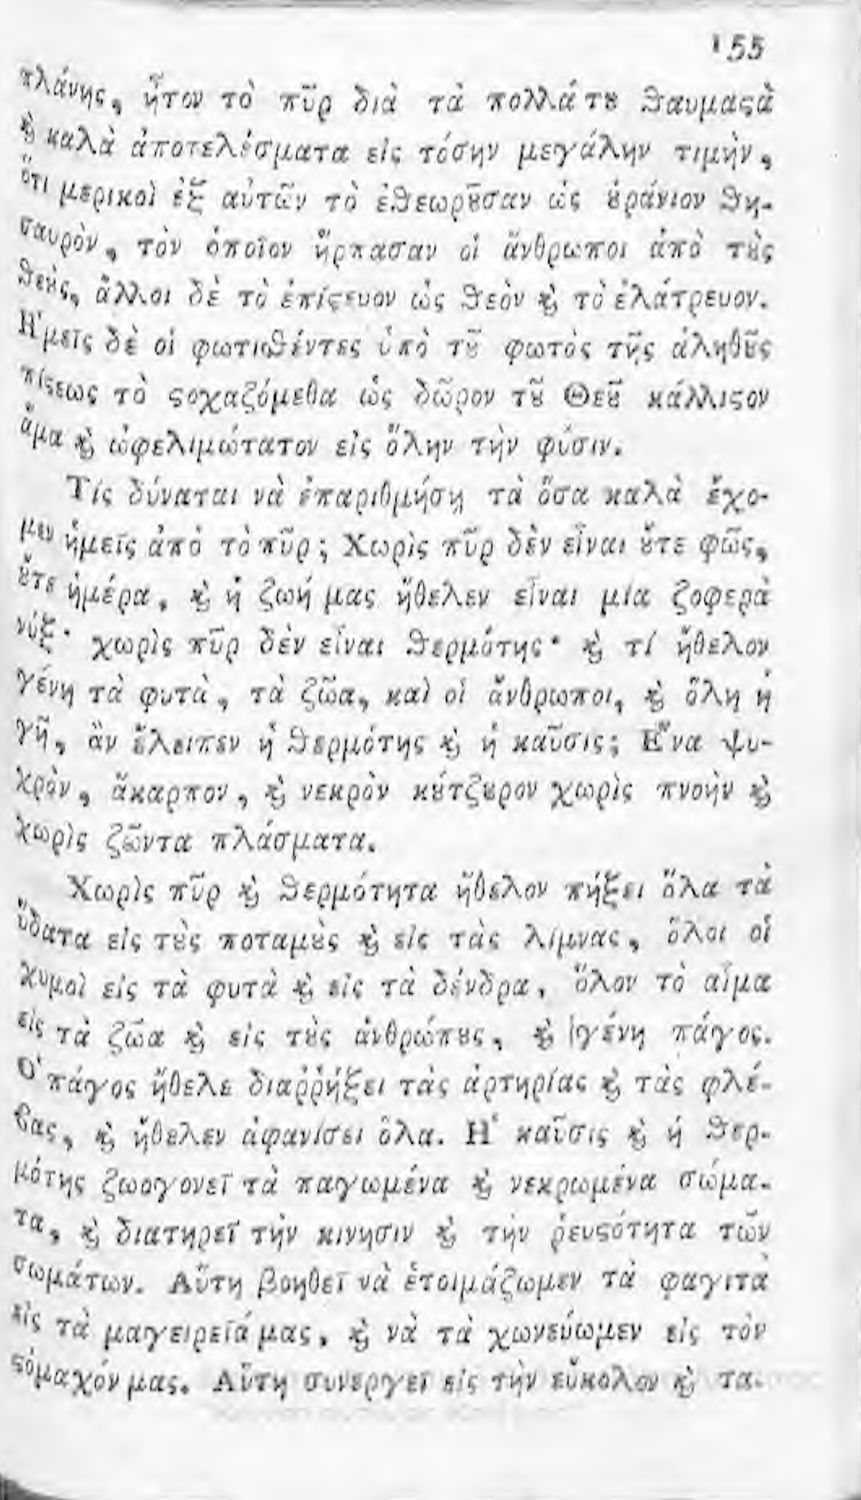 155
πλάνης, ἦτον τὸ πῦρ διὰ τὰ πολλά τȣ ϑαυμαϛὰ
ϗ καλὰ ἀποτελέσματα εἰς τόσην μεγάλην τιμὴν,
ὅτι μερικοὶ ἐξ αὐτῶν τὸ ἐϑεωρȣ͂σαν ὡς ȣ̓ράνιον ϑη-
σαυρὸν, τὸν ὁποῖον ἥρπασαν οἱ ἄνθρωποι ἀπὸ τȣ̀ς
ϑεȣ̀ς, ἄλλοι δὲ τὸ ἐπίϛευον ὡς ϑεὸν ϗ τὸ ἐλάτρευον.
Η῾μεῖς δὲ οἱ φωτιϑέντες ὑπὸ τȣ͂ φωτὸς τῆς ἀληθȣ͂ς
πίϛεως τὸ ϛοχαζόμεθα ὡς δῶρον τȣ͂ Θεȣ͂ κάλλιϛον
ἅμα ϗ ὠφελιμώτατον εἰς ὅλην τὴν φύσιν.
Τίς δύναται νὰ ἐπαριθμήσῃ τὰ ὅσα καλὰ ἔχο-
μεν ἡμεῖς ἀπὸ τὸ πῦρ; Χωρὶς πῦρ δὲν εἶναι ȣ̓́τε φῶς,
ȣ̓́τε ἡμέρα, ϗ ἡ ζωή μας ἤθελεν εἶναι μία ζοφερὰ
νύξ· χωρὶς πῦρ δὲν εἶναι ϑερμότης· ϗ τί ἤθελον
γένῃ τὰ φυτὰ, τὰ ζῶα, καὶ οἱ ἄνθρωποι, ϗ ὅλη ἡ
γῆ, ἂν ἔλειπεν ἡ ϑερμότης ϗ ἡ καῦσις; Ε῞να ψυ-
χρὸν, ἄκαρπον, ϗ νεκρὸν κȣ́τζȣρον χωρὶς πνοὴν ϗ
χωρὶς ζῶντα πλάσματα.
Χωρὶς πῦρ ϗ ϑερμότητα ἤθελον πήξει ὅλα τὰ
ὕδατα εἰς τȣ̀ς ποταμȣ̀ς ϗ εἰς τὰς λίμνας, ὅλοι οἱ
χυμοὶ εἰς τὰ φυτὰ ϗ εἰς τὰ δένδρα, ὅλον τὸ αἷμα
εἰς τὰ ζῶα ϗ εἰς τȣ̀ς ἀνθρώπȣς, ϗ γένῃ πάγος.
Ο῾ πάγος ἤθελε διαῤῥήξει τὰς ἀρτηρίας ϗ τὰς φλέ-
βας, ϗ ἤθελεν ἀφανίσει ὅλα. Η῾ καῦσις ϗ ἡ ϑερ-
μότης ζωογονεῖ τὰ παγωμένα ϗ νεκρωμένα σώμα-
τα, ϗ διατηρεῖ τὴν κινησιν ϗ τὴν ῥευϛότητα τῶν
σωμάτων. Αὕτη βοηθεῖ νὰ ἑτοιμάζωμεν τὰ φαγιτὰ
εἰς τὰ μαγειρεῖά μας, ϗ νὰ τὰ χωνεύωμεν εἰς τὸν
ϛόμαχόν μας. Αὕτη συνεργεῖ εἰς τὴν εὔκολον ϗ τα-